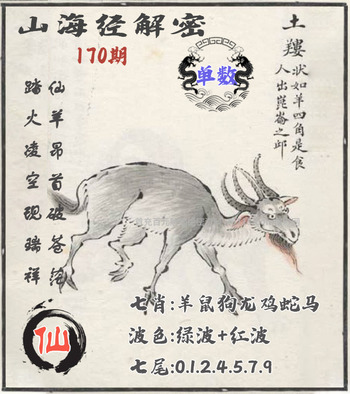 山海经解密
170期
单数
土𦍕
状如羊四角是食
人出崑崙之邱
仙羊昂首破苍穹
踏火凌空现瑞祥
仙
七肖:羊鼠狗龙鸡蛇马
波色:绿波+红波
七尾:0.1.2.4.5.7.9